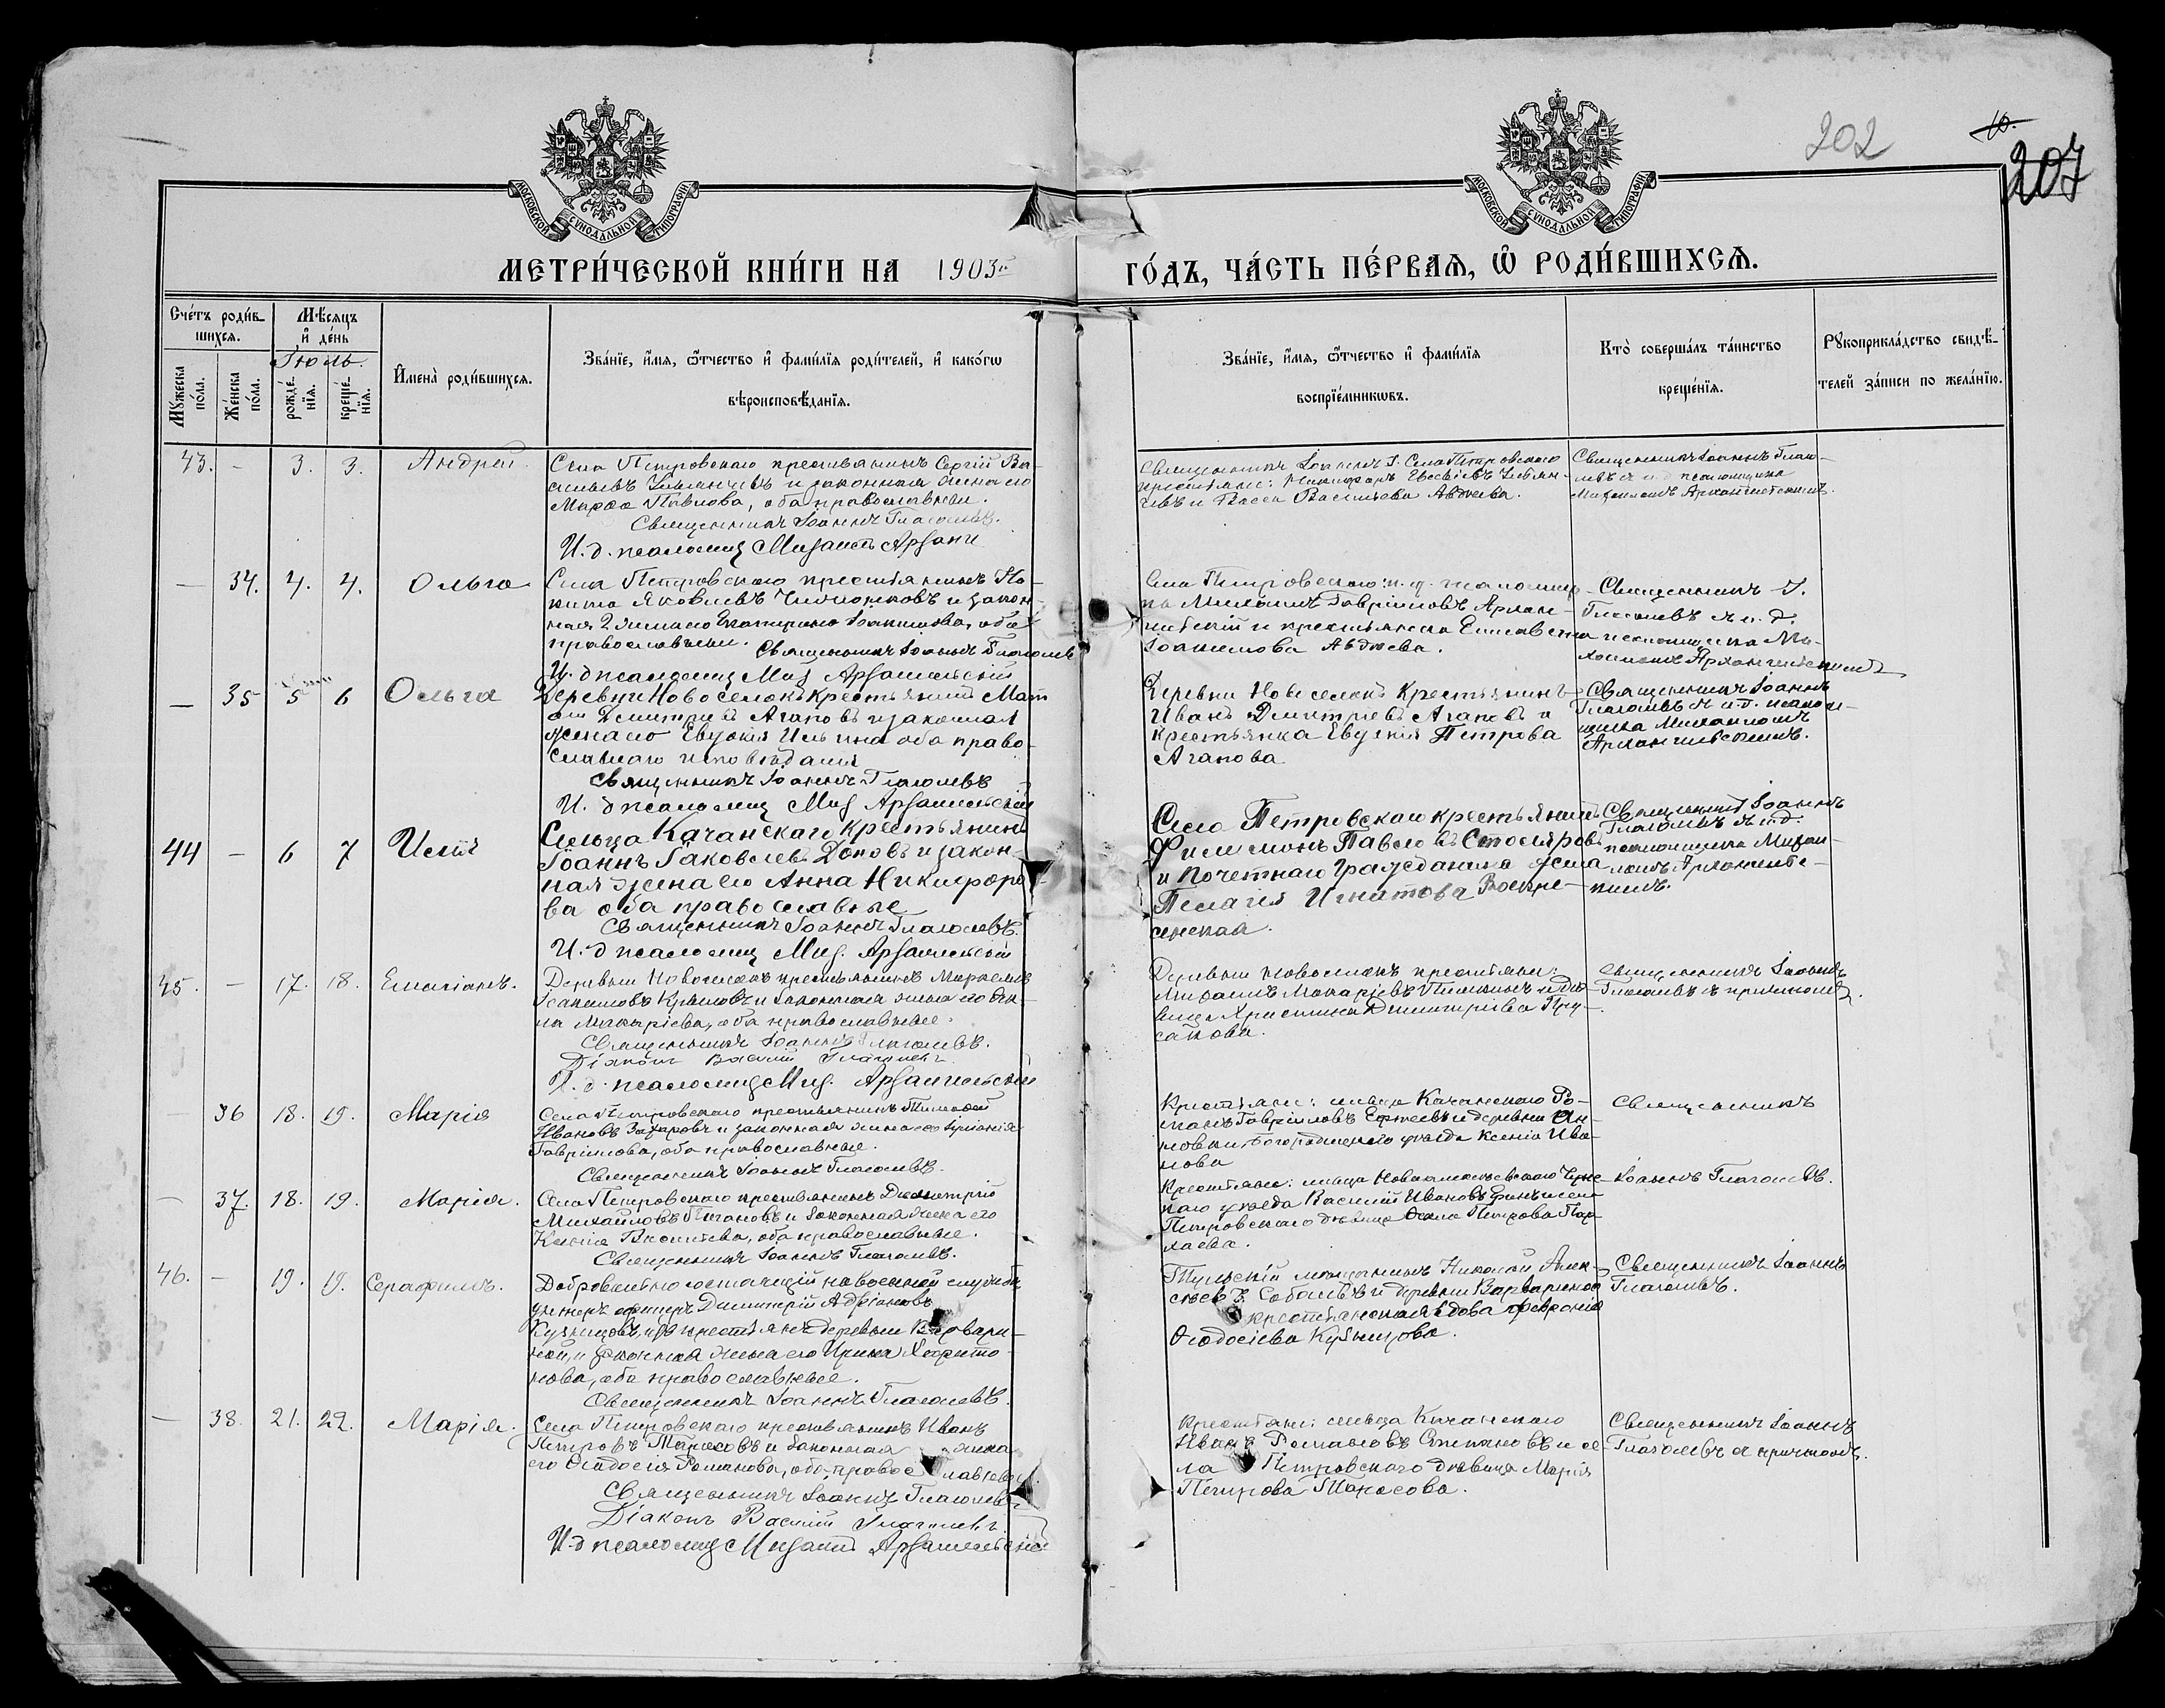 202
10.
207
МОСКОВСКОЙ СѴНОДАЛЬНОЙ ТИПОГРАФІИ
МОСКОВСКОЙ СѴНОДАЛЬНОЙ ТИПОГРАФІИ
МЕТРИ́ЧЕСКОЙ КНИ́ГИ НА 1903й
ГО́ДЪ, ЧА́СТЬ ПЕ́РВАѦ, Ѽ РОДИ́ВШИХСѦ.
Сче́тъ роди́в-
шихсѧ.
Мꙋ́жеска по́ла.
Же́нска по́ла.
Мѣ́сѧцъ
и҆ де́нь
Іюль.
рожде́-
нїѧ.
креще́-
нїѧ.
И҆мена̀ роди́вшихсѧ.
Зва́нїе, и҆́мѧ, ѻ҆́тчество и҆ фамі́лїѧ роди́телей, и҆ како́гѡ
вѣроисповѣ́данїѧ.
Зва́нїе, и҆́мѧ, ѻ҆́тчество и҆ фамі́лїѧ
воспрїе́мникѡвъ.
Кто̀ соверша́лъ та́инство
креще́нїѧ.
Рꙋкоприкла́дство свидѣ́-
телей за́писи по жела́нїю.
43. - 3. 3. Андрей.
Села Петровскаго крестьянинъ Сергій Ва-
сильевъ и законная жена его
Марѳа Павлова, оба православные.
Священникъ Іоаннъ Глаголевъ.
И. д. псаломщ Михаилъ Арханг
Священникъ Іоаннъ Г. Села Петровскаго
крестьяне: Никифоръ
и Васса Васильева Авдѣева.
Священникъ Іоаннъ Глаго-
левъ съ и. д. псаломщика
Михаиломъ Архангельскимъ.
— 34. 4. 4. Ольга
Села Петровскаго крестьянинъ Ни-
кита Яковлевъ и закон-
ная 2 жена его Екатерина Іоакимова, оба
православные. Священникъ Іоаннъ Глаголевъ
И. д псаломщ Мих Архангельскій
Села Петровскаго: и. д. псаломщи-
ка Михаилъ Гавріиловъ Архан-
гельскій и крестьянка Елисавета
Іоакимова Авдѣева.
Священникъ І.
Глаголевъ съ и. д.
псаломщика Ми-
хаиломъ Архангельскимъ
— 35 5 6 Ольга
Деревни Новоселокъ крестьянинъ Мат
Димитріевъ Агаповъ и законная
жена его Евдокія Ильина оба право-
славнаго исповѣданія
Священникъ Іоаннъ Глаголевъ
И. д псаломщ Мих Архангельскій
Деревни Новоселокъ Крестьянинъ
Иванъ Димитріевъ Агаповъ и
крестьянка Евдокія Петрова
Агапова
Священникъ Іоаннъ
Глаголевъ съ и.д. псалом-
щика Михаиломъ
Архангельскимъ.
44 — 6 7
Сельца Качанскаго крестьянинъ
Іоаннъ Іаковлевъ и закон-
ная жена его Анна Никифоро-
ва оба православные
Священникъ Іоаннъ Глаголевъ.
И. д псаломщ Мих. Архангельскій
Села Петровскаго крестьянинъ
Филимонъ Павловъ Столяровъ
и Почетнаго Гражданина жена
Пелагія Игнатова Воскре-
сенская.
Священникъ Іоаннъ
Глаголевъ съ и.д.
псаломщика Михаи-
ломъ Архангельс-
кимъ.
45. — 17. 18. Емиліанъ.
Деревни Новоселокъ крестьянинъ
Іоакимовъ и законная жена его Ан-
на Макаріева, оба православные.
Священникъ Іоаннъ Глаголевъ.
Діаконъ Василій Глаголевъ
И. д. псаломщ Мих. Архангельскій
Деревни Новоселокъ крестьяне:
Михаилъ Макаріевъ и дѣ-
вица Христина Димитріева Пру-
сакова.
Священникъ Іоаннъ
Глаголевъ съ причтомъ.
— 36 18. 19. Марія
Села Петровскаго крестьянинъ Тимоѳей
Ивановъ Захаровъ и законная жена его
Гавріилова, оба православные.
Священникъ Іоаннъ Глаголевъ.
Крестьяне: сельца Качанскаго Ро-
манъ Гавріиловъ и деревни
Богородскаго уѣзда Ксенія Ива-
нова
Священникъ
— 37. 18. 19. Марія.
Села Петровскаго крестьянинъ Димитрій
Михайловъ и законная жена его
Ксенія оба православные.
Священникъ Іоаннъ Глаголевъ.
Крестьяне: сельца
уѣзда Василій Ивановъ и села
Петровскаго дѣвица Петрова
Іоаннъ Глаголевъ.
46. — 19. 19. Серафимъ.
Добровольно состоящій на военной службѣ
унтеръ офицеръ Димитрій Адріановъ
Кузнецовъ, изъ крестьянъ деревни Варвари-
ной, и законная жена его Ирина Харито-
нова, оба православные.
Священникъ Іоаннъ Глаголевъ.
Тульскій мѣщанинъ Николай Алек-
сѣевъ Соболевъ и деревни Вариной
крестьянская вдова Февронія
Ѳеодосіева Кузнецова.
Священникъ Іоаннъ
Глаголевъ.
— 38. 21. 22. Марія.
Села Петровскаго крестьянинъ Иванъ
Петровъ Тарасовъ и законная жена
его Ѳеодосія Романова, оба православные.
Священникъ Іоаннъ Глаголевъ
Діаконъ Василій Глаголевъ.
И. д псаломщ Михаилъ Архангельскій
Крестьяне: сельца Качанскаго
Иванъ Романовъ Степановъ и се-
ла Петровскаго дѣвица Марія
Петрова Тарасова.
Священникъ Іоаннъ
Глаголевъ съ причтомъ.